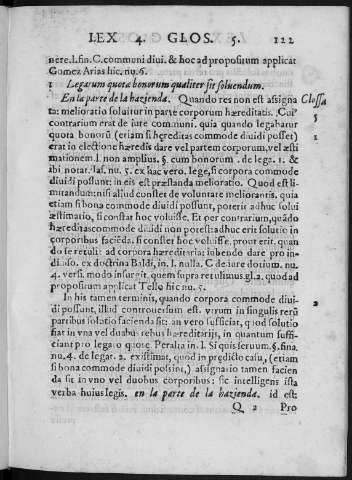 LEX 4. GLOS. 5. 122
nere. l. fin. C. communi diui. & hoc ad propositum applicat
Gomez Arias hic. nu. 6.
1 Legatum quota bonorum qualiter sit soluendum.
En la parte de la hazienda. Quando res non est assigna Glossa
ta: melioratio soluitur in parte corporum hæreditatis. Cui 5
contrarium erat de iure communi. quia quando legabatur 1
quota bonorũ (etiam si hæreditas commode diuidi posset)
erat in electione hæredis dare vel partem corporum, vel æsti
mationem. l. non amplius. §. cum bonorum. de lega. 1. &
ibi notat. Ias. nu. 5. ex hac vero. lege, si corpora commode
diuidi possunt: in eis est præstanda melioratio. Quod est li-
mitandum: nisi aliud constet de volutate meliorantis. quia
etiam si bona commode diuidi possunt, poterit adhuc solui
æstimatio, si constat hoc voluisse. Et per contrarium, quãdo
hæreditas commode diuidi non potest: adhuc erit solutio in
corporibus faciẽda. si constet hoc voluisse. prout erit. quan
do se retulit ad corpora hæreditaria: iubendo dare pro in-
diuiso. ex doctrina Baldi, in l. nulla. C. de iure dotium. nu.
4. versi. modo insurgit. quem supra retulimus gl. 2. quod ad
propositum applicat Tello hic nu. 5.
In his tamen terminis, quando corpora commode diui- 2
di possunt, illud controuersum est. vtrum in singulis rerũ
partibus solutio facienda sit: an vero sufficiat, quod solutio
fiat in vna vel duabus rebus hæreditarijs, in quantum suffi-
ciant pro legato quotę. Peralta in l. Si quis seruum. §. fina.
nu. 4. de legat. 2. existimat, quod in prædicto casu, (etiam
si bona commode diuidi possint,) assignatio tamen facien
da sit in vno vel duobus corporibus: sic intelligens ista
verba huius legis. en la parte de la hazienda. id est:
Q 2 Pro